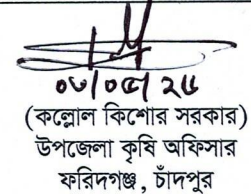 (কল্লোল কিশোর সরকার)
উপজেলা কৃষি অফিসার
ফরিদগঞ্জ, চাঁদপুর